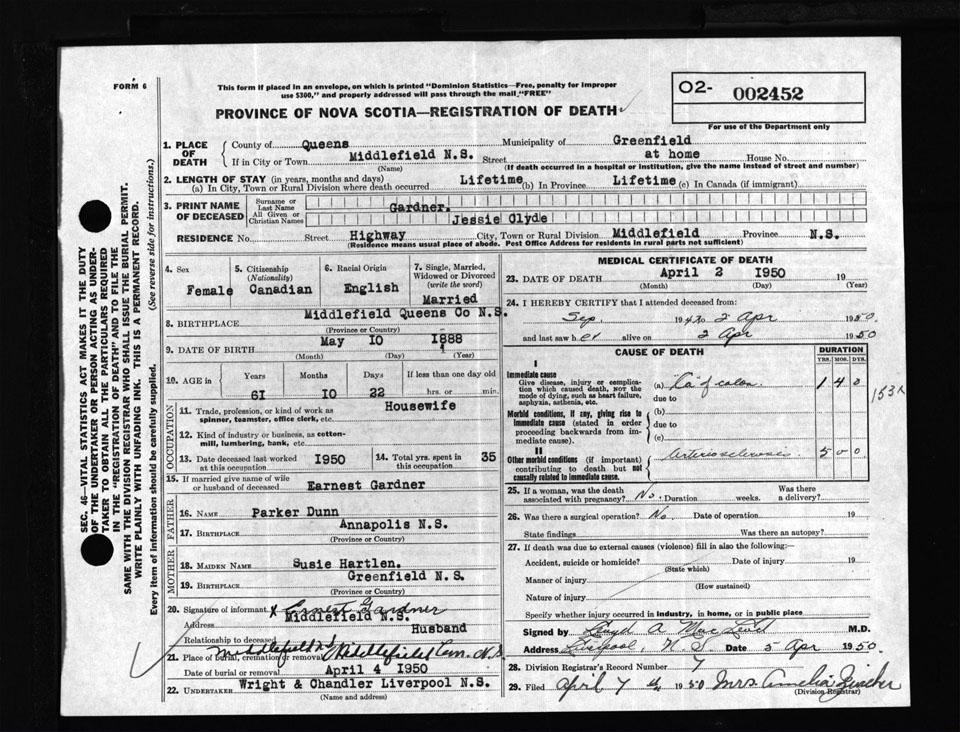 FORM 6
This form if placed in an envelope, on which is printed "Dominion Statistics—Free, penalty for improper
use $300," and properly addressed will pass through the mail, "FREE"
O2- 002452
For use of the Department only
PROVINCE OF NOVA SCOTIA—REGISTRATION OF DEATH
SEC. 46—VITAL STATISTICS ACT MAKES IT THE DUTY
OF THE UNDERTAKER OR PERSON ACTING AS UNDER-
TAKER TO OBTAIN ALL THE PARTICULARS REQUIRED
IN THE "REGISTRATION OF DEATH" AND TO FILE THE
SAME WITH THE DIVISION REGISTRAR WHO SHALL ISSUE THE BURIAL PERMIT.
WRITE PLAINLY WITH UNFADING INK. THIS IS A PERMANENT RECORD.
Every item of information should be carefully supplied. (See reverse side for instructions.)
1. PLACE OF DEATH
County of Queens Municipality of Greenfield
If in City or Town Middlefield N.S. Street at home House No.
(Name) (If death occurred in a hospital or institution, give the name instead of street and number)
2. LENGTH OF STAY (in years, months and days)
(a) In City, Town or Rural Division where death occurred Lifetime (b) In Province Lifetime (c) In Canada (if immigrant)
3. PRINT NAME OF DECEASED
Surname or Last Name Gardner.
All Given or Christian Names Jessie Clyde
RESIDENCE No. Street Highway City, Town or Rural Division Middlefield Province N.S.
(Residence means usual place of abode. Post Office Address for residents in rural parts not sufficient)
4. Sex Female
5. Citizenship (Nationality) Canadian
6. Racial Origin English
7. Single, Married, Widowed or Divorced (write the word) Married
8. BIRTHPLACE Middlefield Queens Co N.S.
(Province or Country)
9. DATE OF BIRTH May 10 1888
(Month) (Day) (Year)
10. AGE in Years Months Days If less than one day old
61 10 22 hrs. or min.
OCCUPATION
11. Trade, profession, or kind of work as spinner, teamster, office clerk, etc. Housewife
12. Kind of industry or business, as cotton-mill, lumbering, bank, etc.
13. Date deceased last worked at this occupation 1950
14. Total yrs. spent in this occupation. 35
15. If married give name of wife or husband of deceased Earnest Gardner
FATHER
16. NAME Parker Dunn
17. BIRTHPLACE Annapolis N.S.
(Province or Country)
MOTHER
18. MAIDEN NAME Susie Hartlen.
19. BIRTHPLACE Greenfield N.S.
(Province or Country)
20. Signature of informant x Ernest Gardner
Address Middlefield N.S.
Relationship to deceased Husband
21. Place of burial, cremation or removal Middlefield Middlefield Cem. N.S.
Date of burial or removal April 4 1950
22. UNDERTAKER Wright & Chandler Liverpool N.S.
(Name and address)
MEDICAL CERTIFICATE OF DEATH
23. DATE OF DEATH April 2 1950 19
(Month) (Day) (Year)
24. I HEREBY CERTIFY that I attended deceased from:
Sep. 19 to 2 Apr 1950.
and last saw her alive on 2 Apr 1950
CAUSE OF DEATH
DURATION
YRS. MOS. DYS.
I
Immediate cause
Give disease, injury or complication which caused death, NOT the mode of dying, such as heart failure, asphyxia, asthenia, etc.
(a) Ca of colon 1 4 0
due to
Morbid conditions, if any, giving rise to immediate cause (stated in order proceeding backwards from immediate cause).
(b)
due to
(c)
II
Other morbid conditions (if important) contributing to death but not causally related to immediate cause.
Arteriosclerosis 5 0 0
153A
25. If a woman, was the death associated with pregnancy? No. Duration weeks. Was there a delivery?
26. Was there a surgical operation? No. Date of operation 19
State findings Was there an autopsy?
27. If death was due to external causes (violence) fill in also the following:—
Accident, suicide or homicide? Date of injury 19
(State which)
Manner of injury
(How sustained)
Nature of injury
Specify whether injury occurred in industry, in home, or in public place
Signed by Lloyd A MacLeod M.D.
Address Liverpool, N.S. Date 5 Apr 1950.
28. Division Registrar's Record Number 7
29. Filed April 7th 1950 Mrs. Amelia
(Division Registrar)